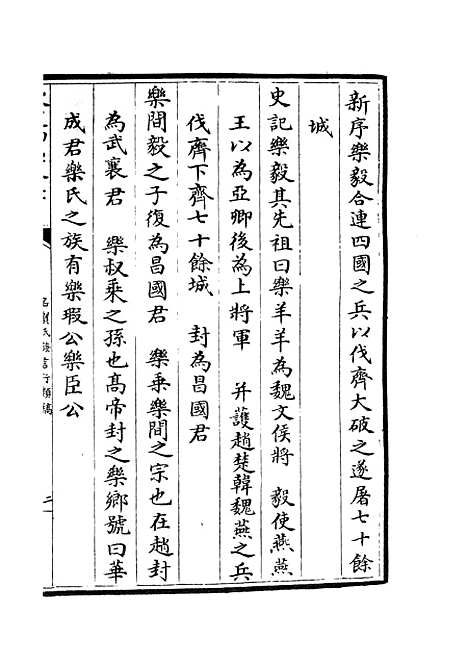 新序樂毅合連四國之兵以伐齊大破之遂屠七十餘
城
史記樂毅其先祖曰樂羊羊為魏文侯將　毅使燕燕
王以為亞卿後為上將軍　并護趙楚韓魏燕之兵
伐齊下齊七十餘城　封為昌國君
樂間毅之子復為昌國君　樂乘樂間之宗也在趙封
為武襄君　樂叔乘之孫也高帝封之樂鄉號曰華
成君樂氏之族有樂瑕公樂臣公
名賢氏族言行類稿
二